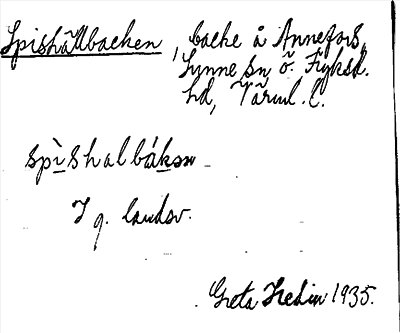 Spishällbacken, backe å Annefors,
Sunne sn, Ö. Fryksd.
hd, Värml. l.
spìshalbákən
I g. landsv.
Greta Hedin 1935.